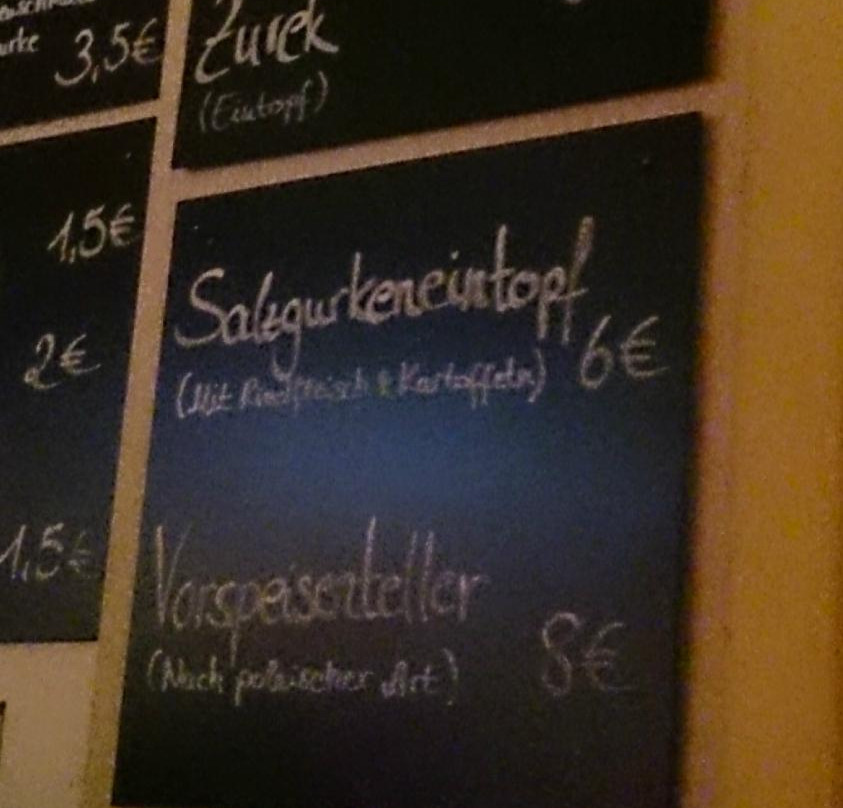 urke 3,5€
1,5€
2€
1,5€
Zurek
(Eintopf)
Salzgurkeneintopf
6€
(Mit Rindfleisch & Kartoffeln)
Vorspeisenteller
8€
(Nach polnischer Art)